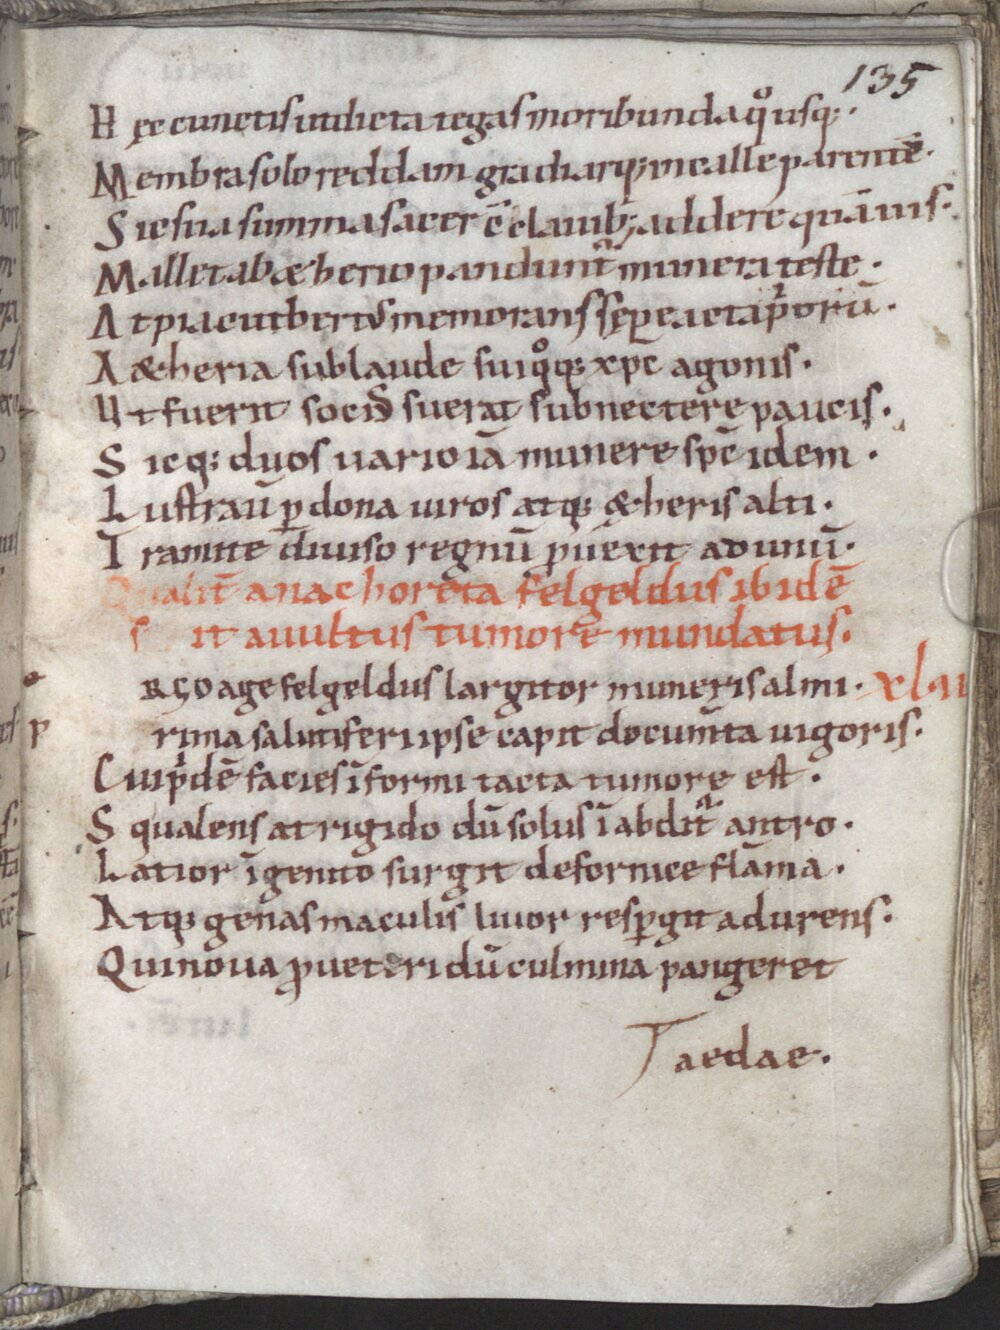 135
Hęc cunctis indicta tegas moribunda qͦusq;·
Membra solo reddam gradiarq; in calle parentē·
Sic sua summa sacer c̄ clauib; addere quāuis·
Mallet ab æherio pandunt᷑ munera teste·
At pia cutbertꝰ memorans sēp eacta priorū·
Aæheria sub laude suiqͦq; xpc agonis·
Ut fuerit sociꝰ suerat subnectere paucis·
Sicq; duos uario iā munere spc̄ idem·
Lustraū ꝑ dona uiros atq; æheris alti·
Tramite diuiso regnū ꝓuexit ad unū·
Qualit̄ anachoreta felgeldus ibidē
sit a uultus tumore mundatus·
RGO age felgeldus largitor muneris almi· xlui
Prima salutiferi ipse capit documt̄a uigoris·
Cui pⁱdē facies īformi tacta tumore est·
Squalens at rigido dū solus ī abdit᷑ antro·
Latior īgenito surgit de fornice flāma·
Atq; genas maculis liuor resꝑgit adurens·
Qui noua ꝓ ueteri dū culmina pangeret
Taedae·